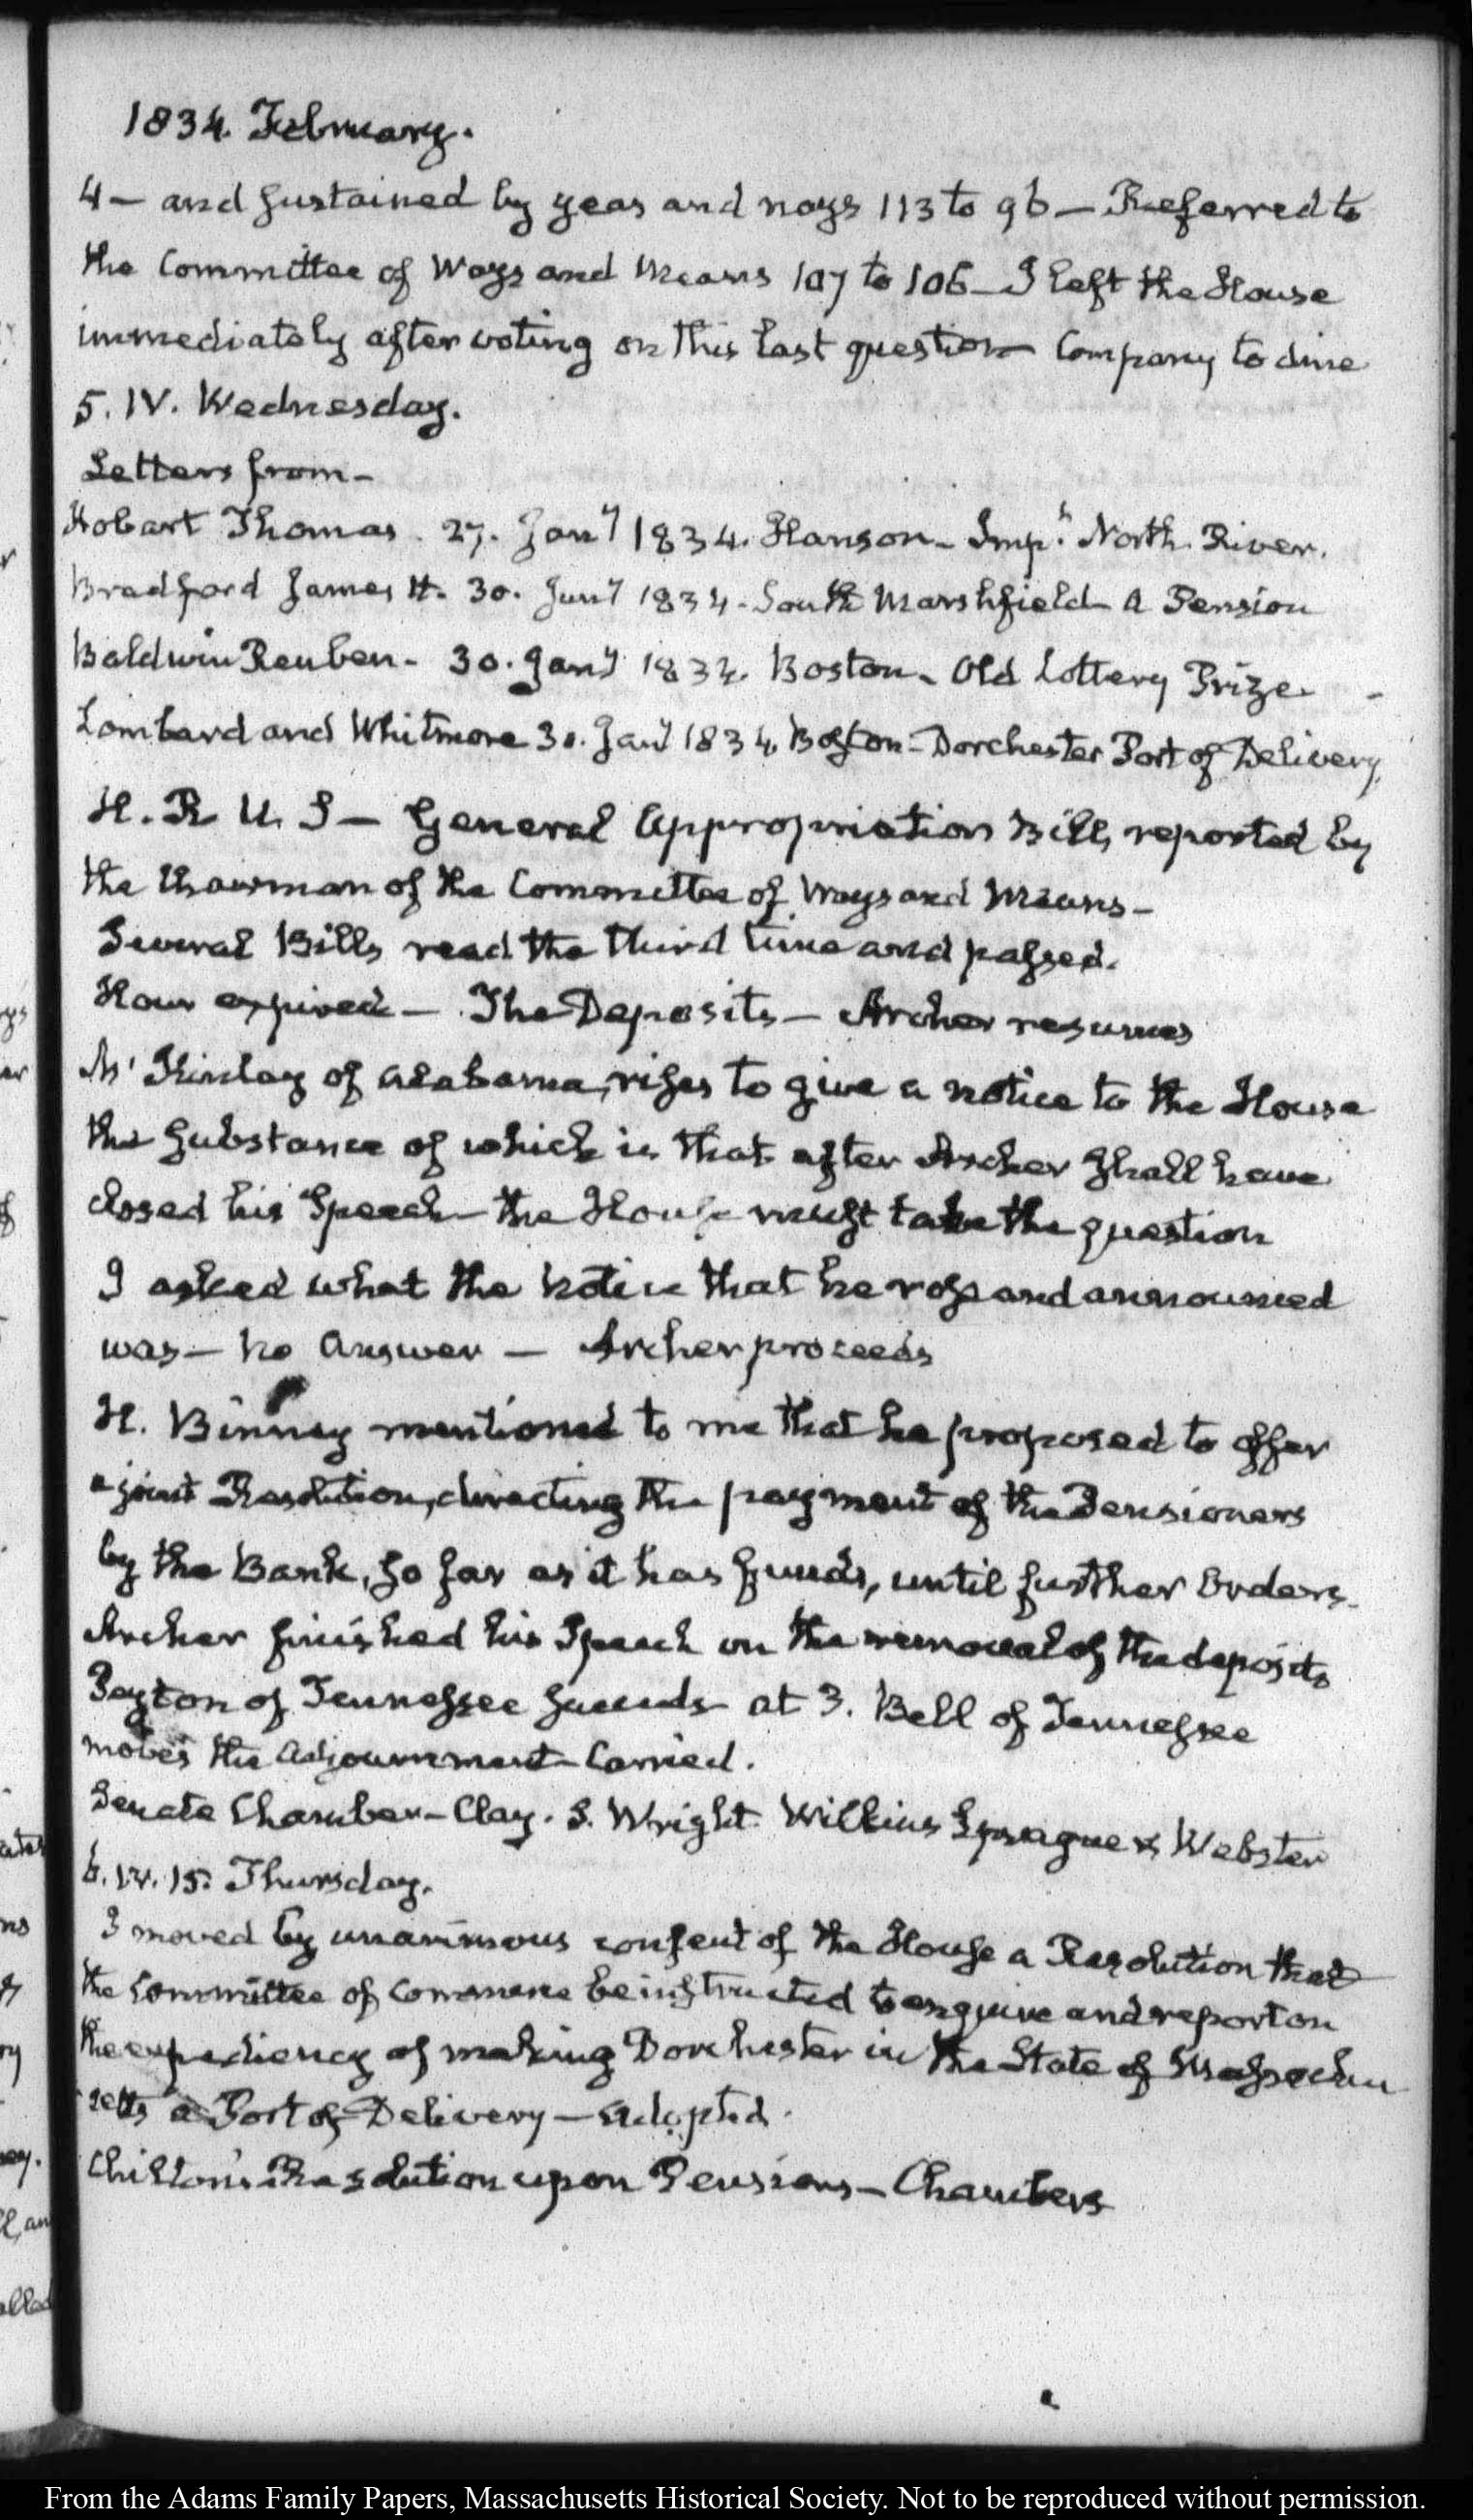 1834. February.
4 — and sustained by yeas and nays 113 to 96 — Referred to
the Committee of Ways and Means 107 to 106 — I left the House
immediately after voting on this last question Company to dine
5. IV. Wednesday.
Letters from —
Hobart Thomas. 27. Jany 1834. Hanson — Impt. North River.
Bradford James H. 30. Jany 1834. South Marshfield — A Pension
Baldwin Reuben — 30. Jany 1834. Boston — Old Lottery Prize —
Lombard and Whitmore 30. Jany 1834. Boston — Dorchester Port of Delivery.
H. R U. S — General Appropriation Bill, reported by
the Chairman of the Committee of Ways and Means —
Several Bills read the third time and passed.
Hour expired — The Deposits — Archer resumes
Mc'Kinlay of Alabama, rises to give a notice to the House
the substance of which is that after Archer shall have
closed his Speech — the House must take the question
I asked what the notice that he rose and announced
was — no answer — Archer proceeds
H. Binney mentioned to me that he proposed to offer
a joint Resolution, directing the payment of the Pensioners
by the Bank, so far as it has funds, until further Orders.
Archer finished his Speech on the removal of the deposits
Peyton of Tennessee succeeds at 3. Bell of Tennessee
moves the adjournment — Carried.
Senate Chamber — Clay. S. Wright Wilkins Sprague & Webster
6. IV. 15. Thursday.
I moved by unanimous consent of the House a Resolution that
the Committee of Commerce be instructed to enquire and report on
the expediency of making Dorchester in the State of Massachu
setts a Port of Delivery — adopted.
Chilton's Resolution upon Pensions — Chambers
From the Adams Family Papers, Massachusetts Historical Society. Not to be reproduced without permission.